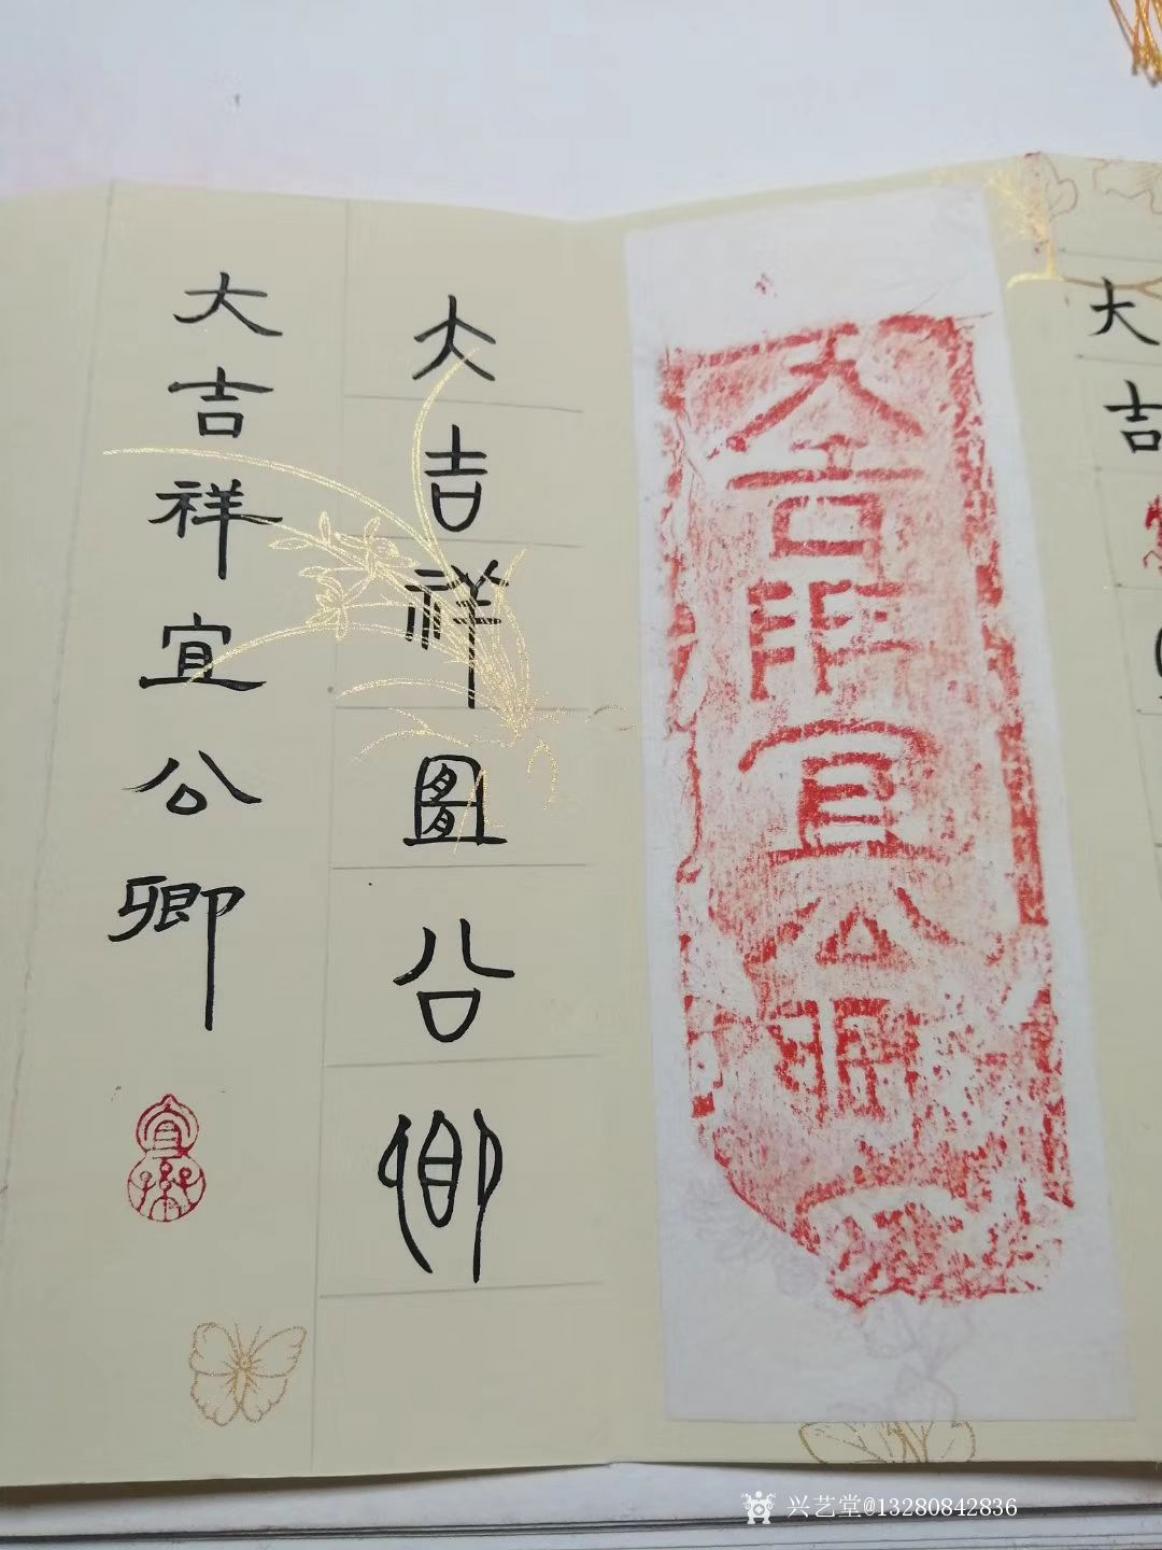 大吉
大吉羊宜公卿
大吉祥宜公卿
大吉祥宜公卿
兴艺堂@13280842836